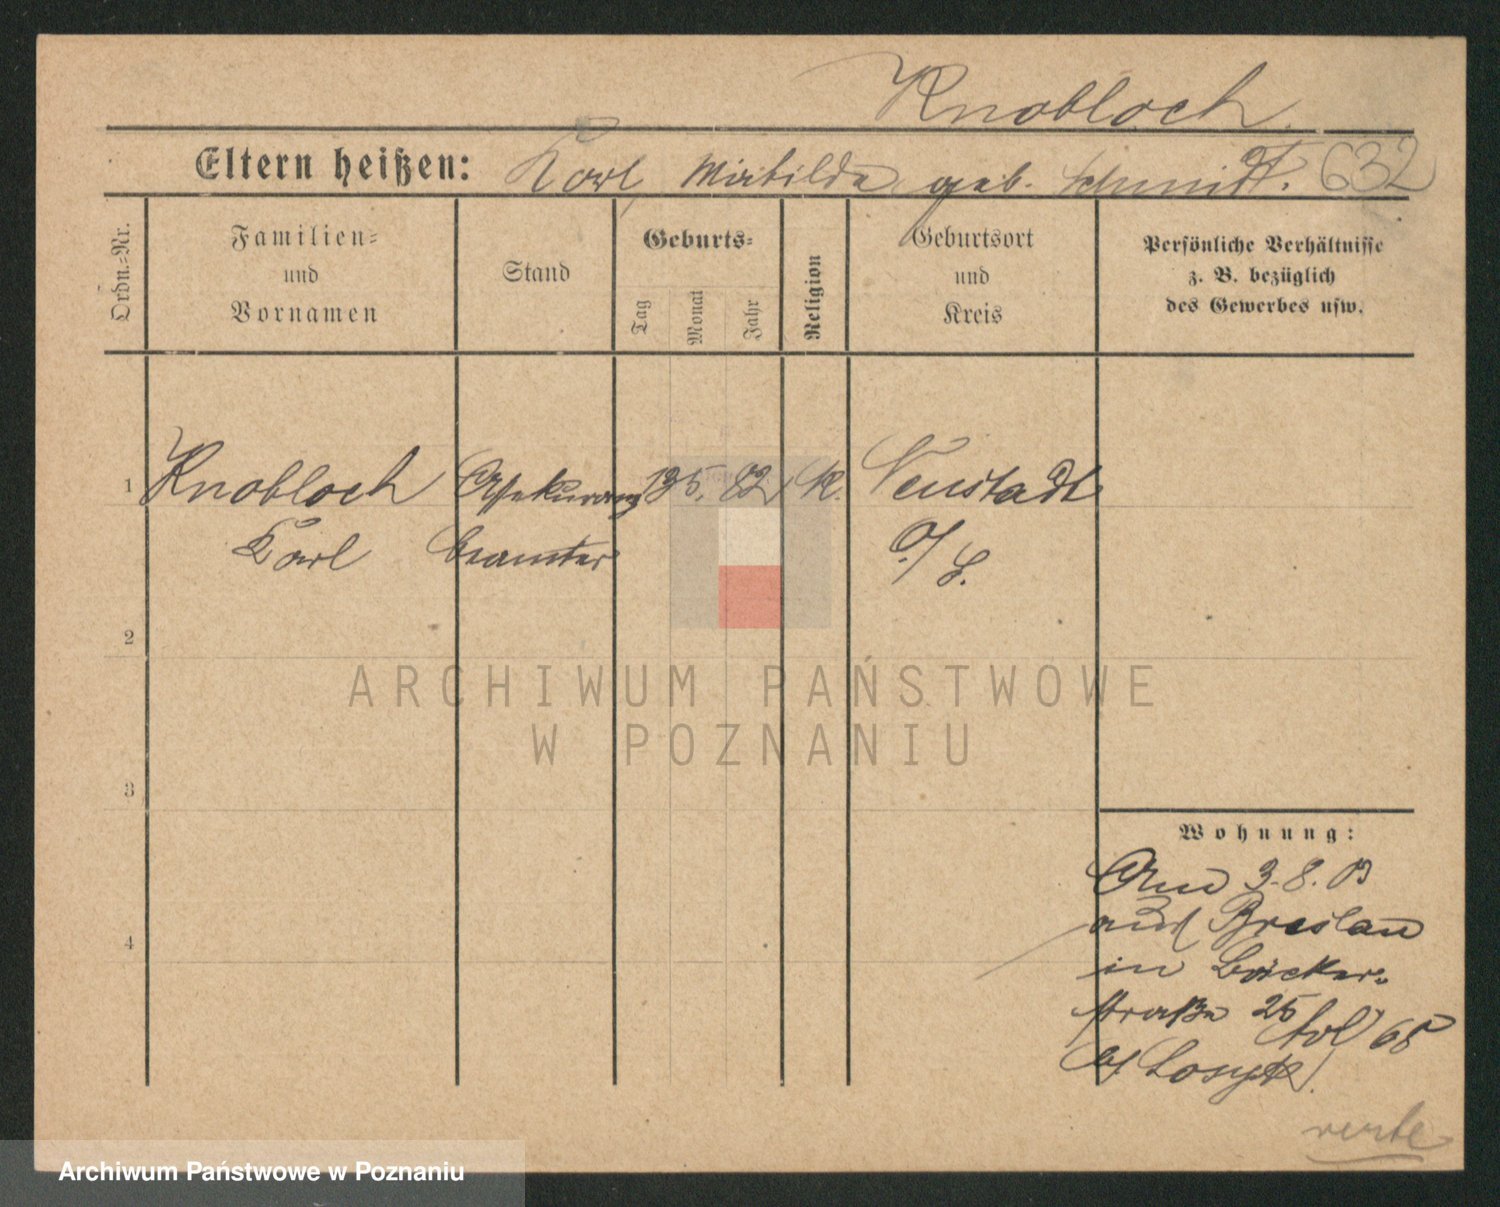 Knobloch.
Eltern heißen: Karl Mathilde geb. Schmidt. 632
Ordn.-Nr.
Familien- und Vornamen
Stand
Geburts-
Tag Monat Jahr
Religion
Geburtsort und Kreis
Persönliche Verhältnisse
z. B. bezüglich
des Gewerbes usw.
1 Knobloch Assekuranz 13 5. 82 K. Neustadt
Karl beamter O/S.
2
3
4
Wohnung:
Am 3.8.03
aus Breslau
in Bäcker-
straße 25 fol 68
b/
verte
ARCHIWUM PAŃSTWOWE
W POZNANIU
Archiwum Państwowe w Poznaniu